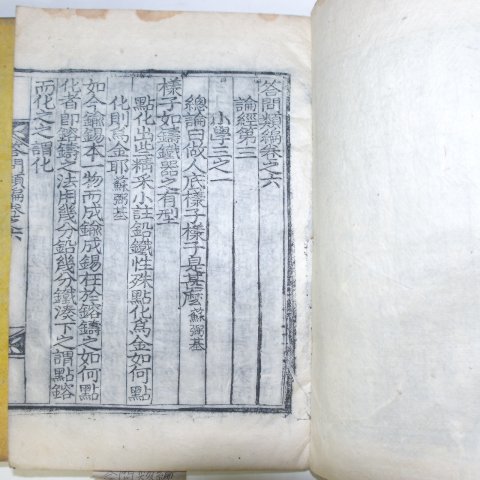 答問類編卷之六
論經第三
小學三之一
總論曰做人底樣子樣子是甚麼 蘇弼基
樣子如鑄鐵器之有型
點化出些精采小註鉛鐵性殊點化爲金如何點
化則爲金耶 蘇弼基
如今鍮錫本一物而成鍮成錫在於鎔鑄之如何點
化者即鎔鑄之法用幾分鉛幾分鐵湊下之謂點鎔
而化之之謂化
答問類編卷之六